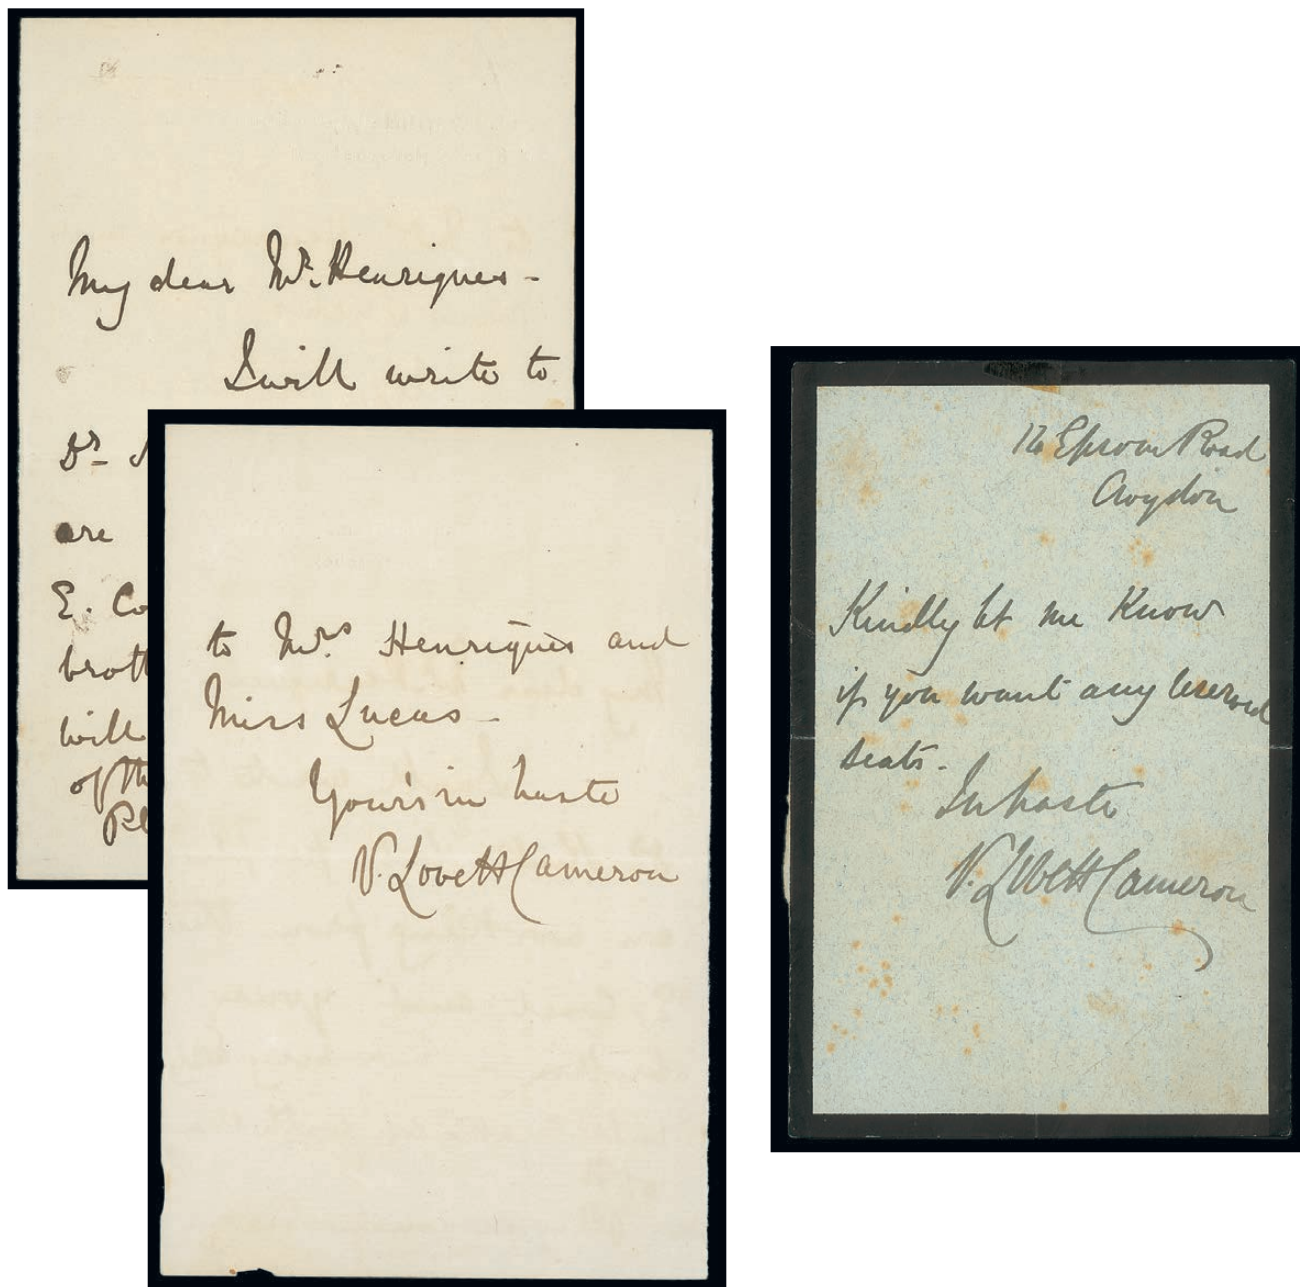 My dear Mr. Henriques -
I will write to
Dr
are
E. Co
broth
will
of th
Pl
to Mrs Henriques and
Miss Lucas -
Your's in haste
V. Lovett Cameron
Epsom Road
Croydon
Kindly let me Know
if you want any reserved
seats.
In haste
V. Lovett Cameron